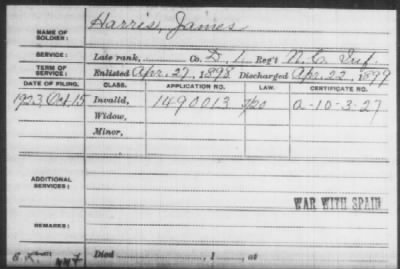 NAME OF SOLDIER: Harris, James
SERVICE: Late rank, Co. D, 1 Reg't N.C. Inf.
TERM OF SERVICE: Enlisted Apr. 27, 1898 Discharged Apr. 22, 1899
DATE OF FILING. CLASS. APPLICATION NO. LAW. CERTIFICATE NO.
1923 Oct. 15 Invalid, 1490013 A-10-3-27
Widow,
Minor,
ADDITIONAL SERVICES:
WAR WITH SPAIN
REMARKS:
Died , 1 , at